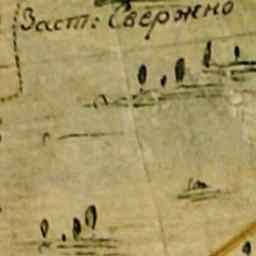 Заст: Свержно